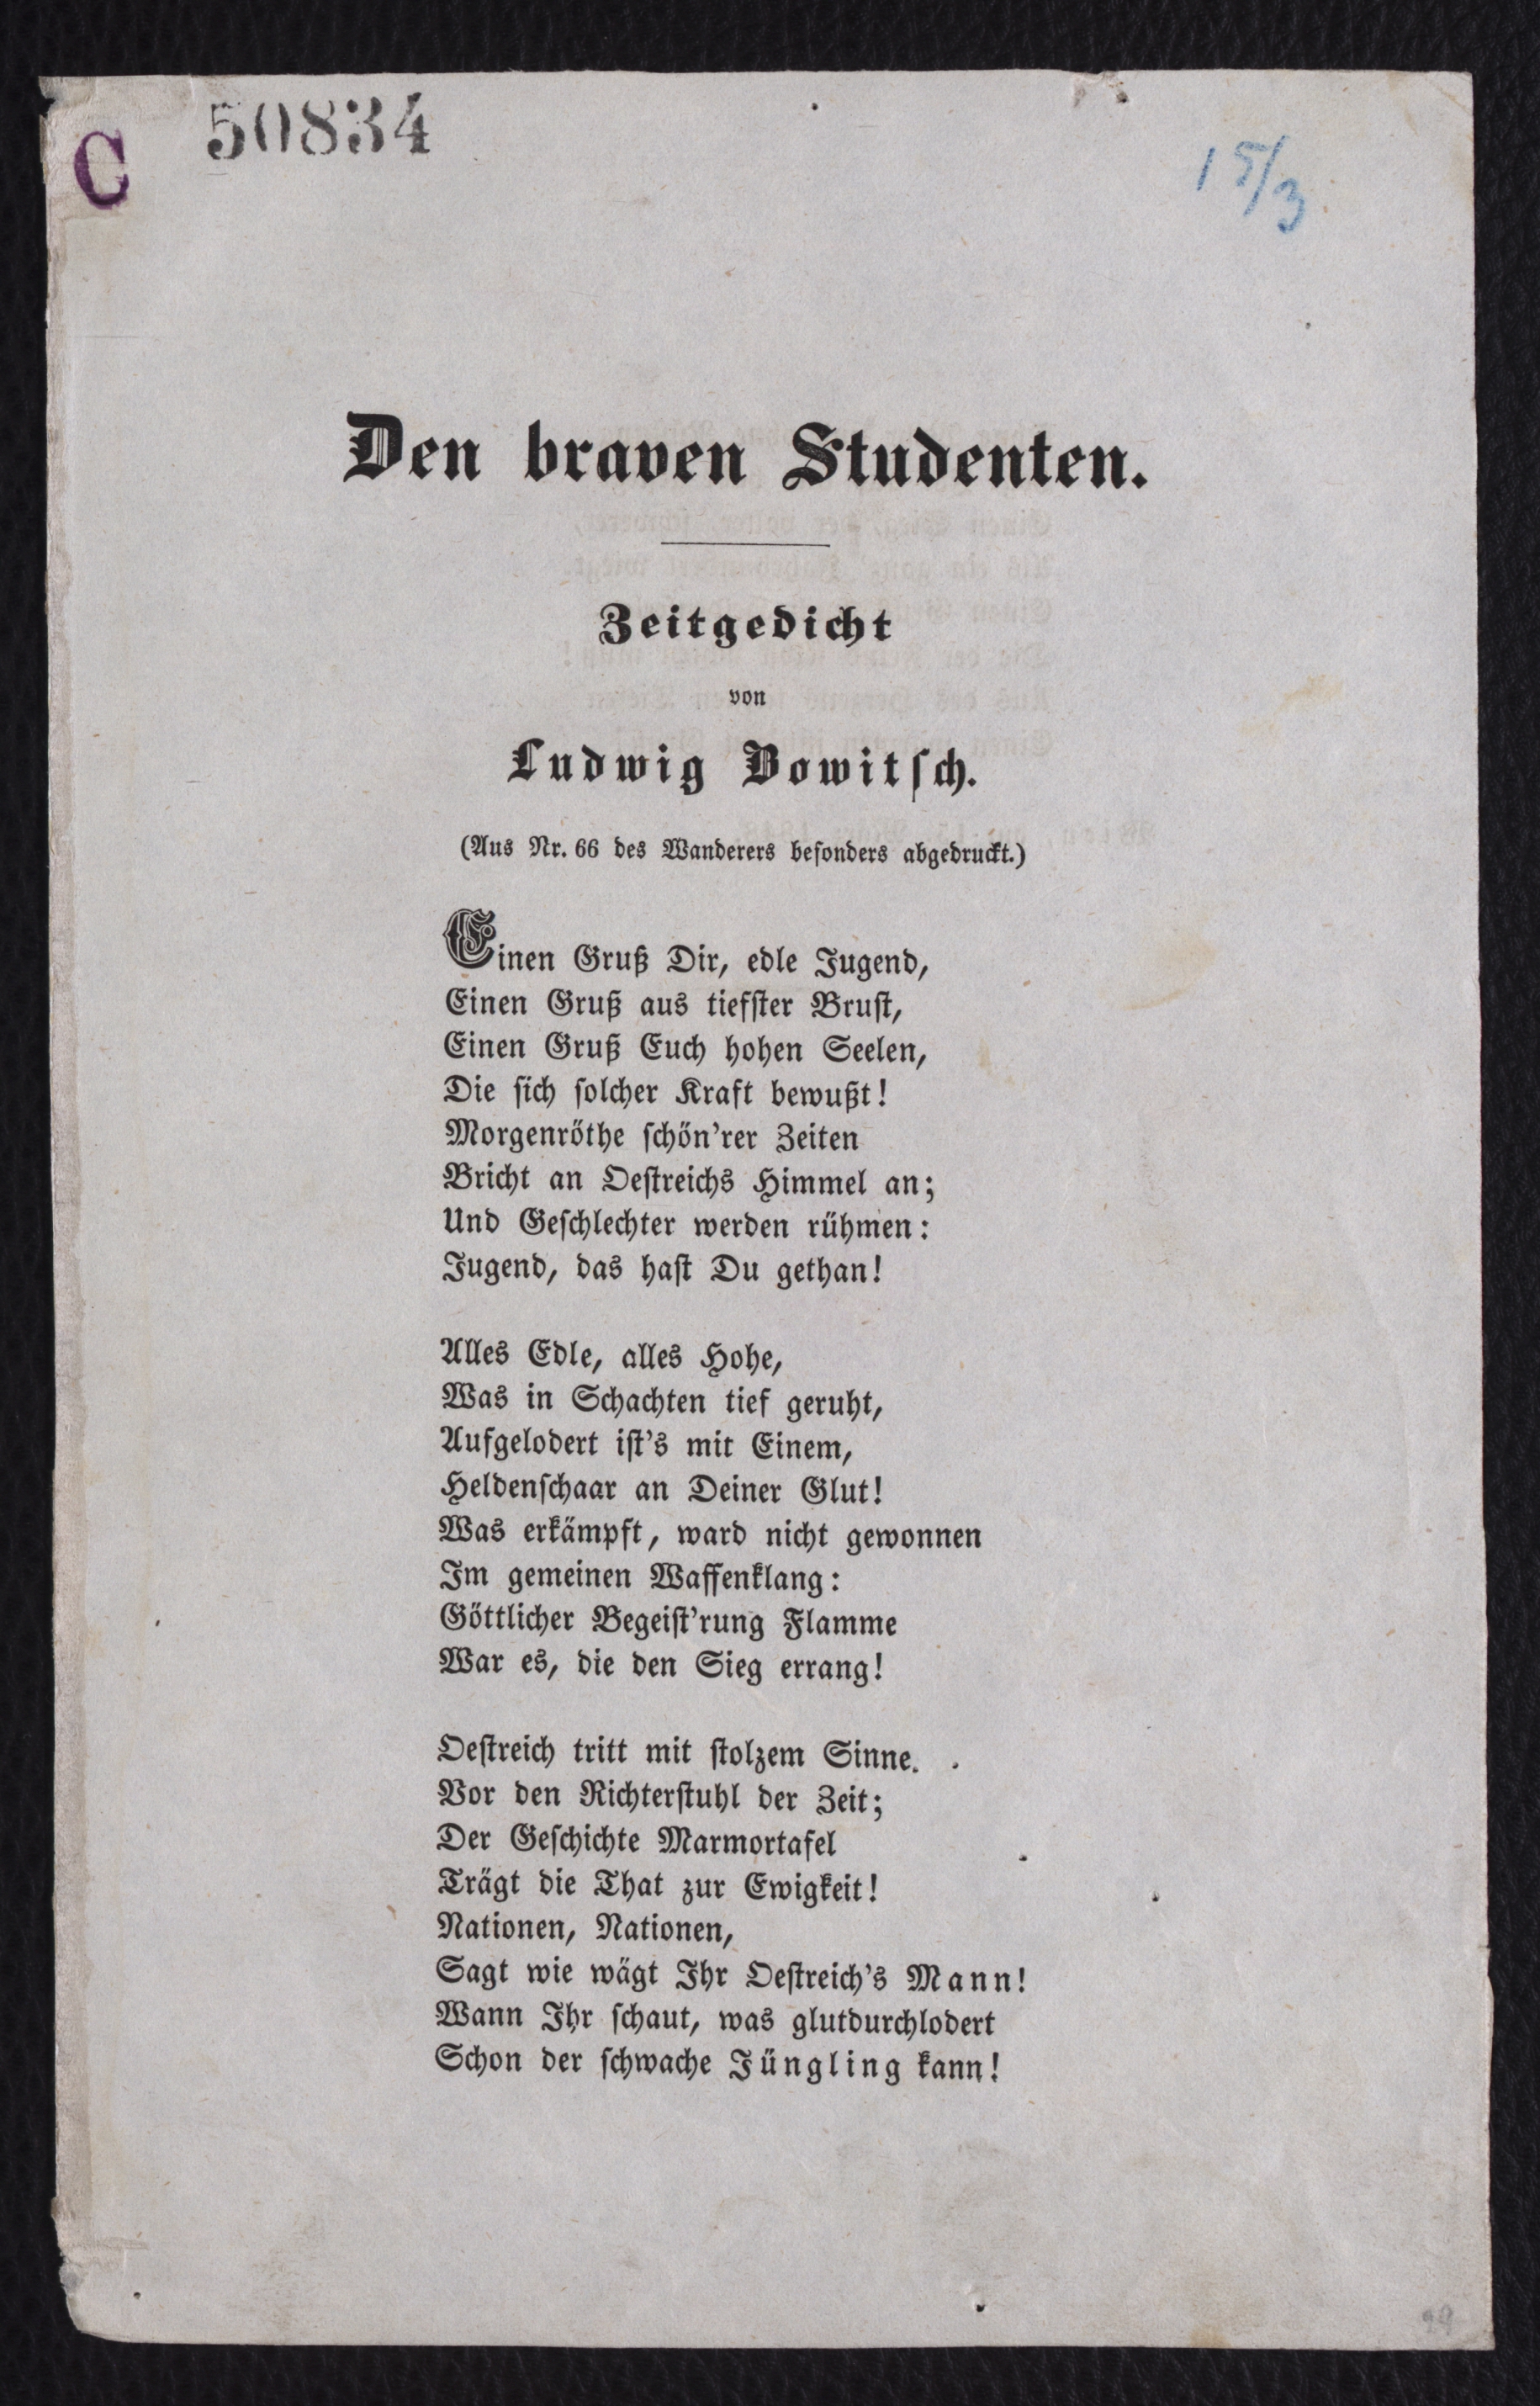 C 50834
15/3
Den braven Studenten.
Zeitgedicht
von
Ludwig Bowitsch.
(Aus Nr. 66 des Wanderers besonders abgedruckt.)
Einen Gruß Dir, edle Jugend,
Einen Gruß aus tiefster Brust,
Einen Gruß Euch hohen Seelen,
Die sich solcher Kraft bewußt!
Morgenröthe schön'rer Zeiten
Bricht an Oestreichs Himmel an;
Und Geschlechter werden rühmen:
Jugend, das hast Du gethan!
Alles Edle, alles Hohe,
Was in Schachten tief geruht,
Aufgelodert ist's mit Einem,
Heldenschaar an Deiner Glut!
Was erkämpft, ward nicht gewonnen
Im gemeinen Waffenklang:
Göttlicher Begeist'rung Flamme
War es, die den Sieg errang!
Oestreich tritt mit stolzem Sinne.
Vor den Richterstuhl der Zeit;
Der Geschichte Marmortafel
Trägt die That zur Ewigkeit!
Nationen, Nationen,
Sagt wie wägt Ihr Oestreich's Mann!
Wann Ihr schaut, was glutdurchlodert
Schon der schwache Jüngling kann!